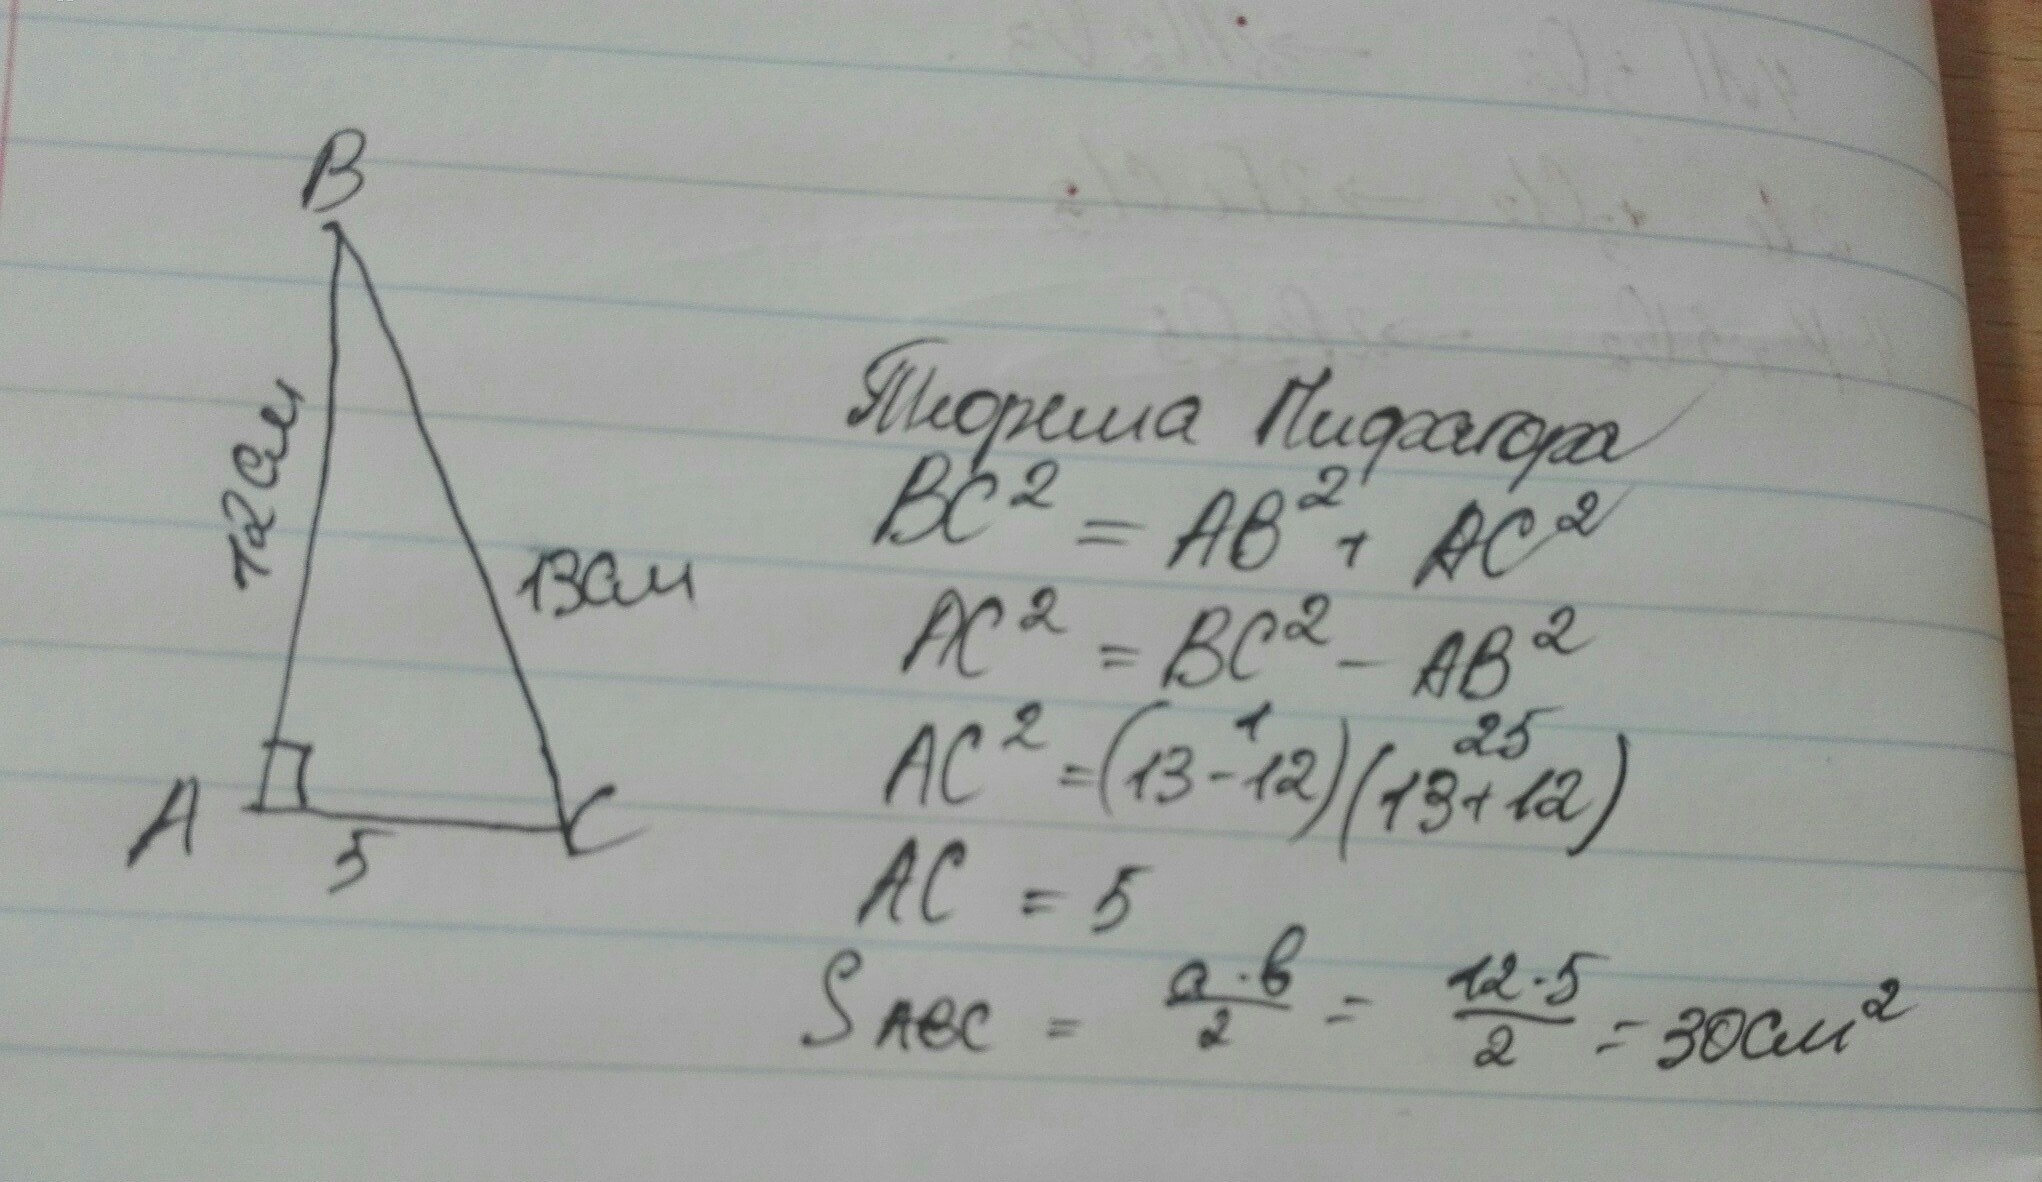 B
12см
13см
A
5
C
Теорема Пифагора
BC² = AB² + AC²
AC² = BC² - AB²
1 25
AC² = (13-12)(13+12)
AC = 5
S ABC = a·b/2 = 12·5/2 = 30см²